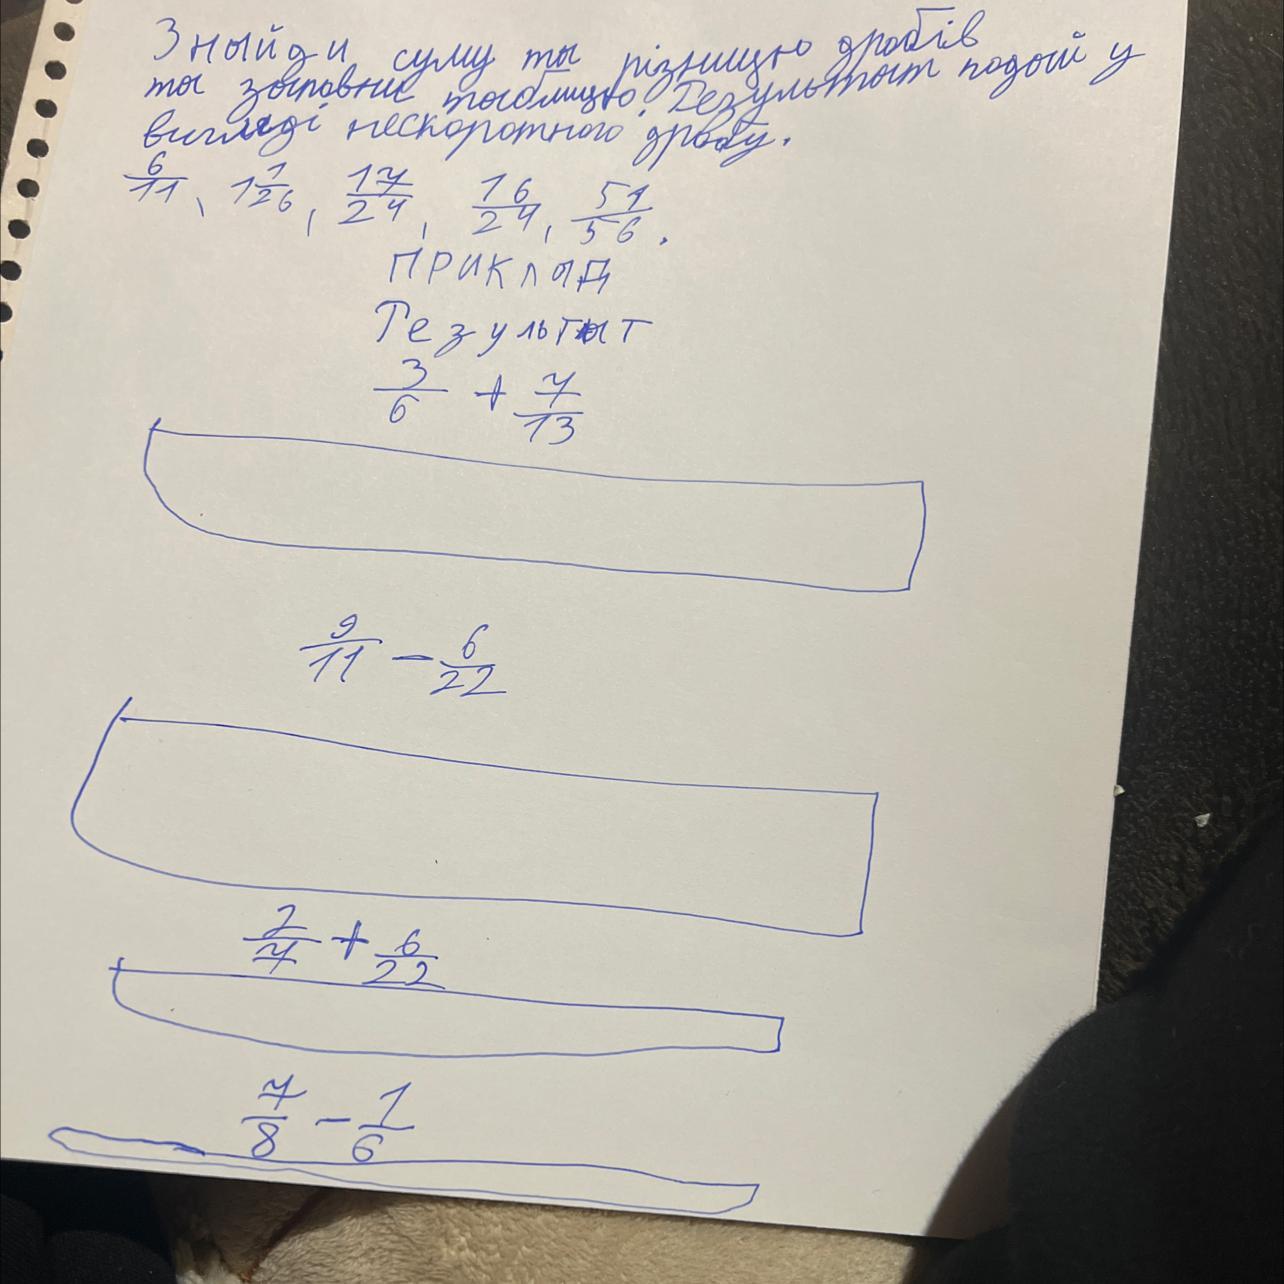 Знайди суму та різницю дробів
та заповни таблицю. Результат подай у
вигляді нескоротного дробу.
6/11, 1 1/26, 17/24, 16/24, 51/56.
ПРИКЛАД
Результат
3/6 + 7/13
9/11 - 6/22
2/7 + 6/22
7/8 - 1/6